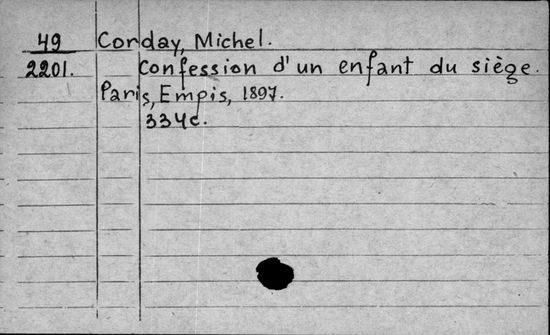 49 Corday, Michel.
2201. Confession d'un enfant du siège.
Paris, Empis, 1897.
334c.